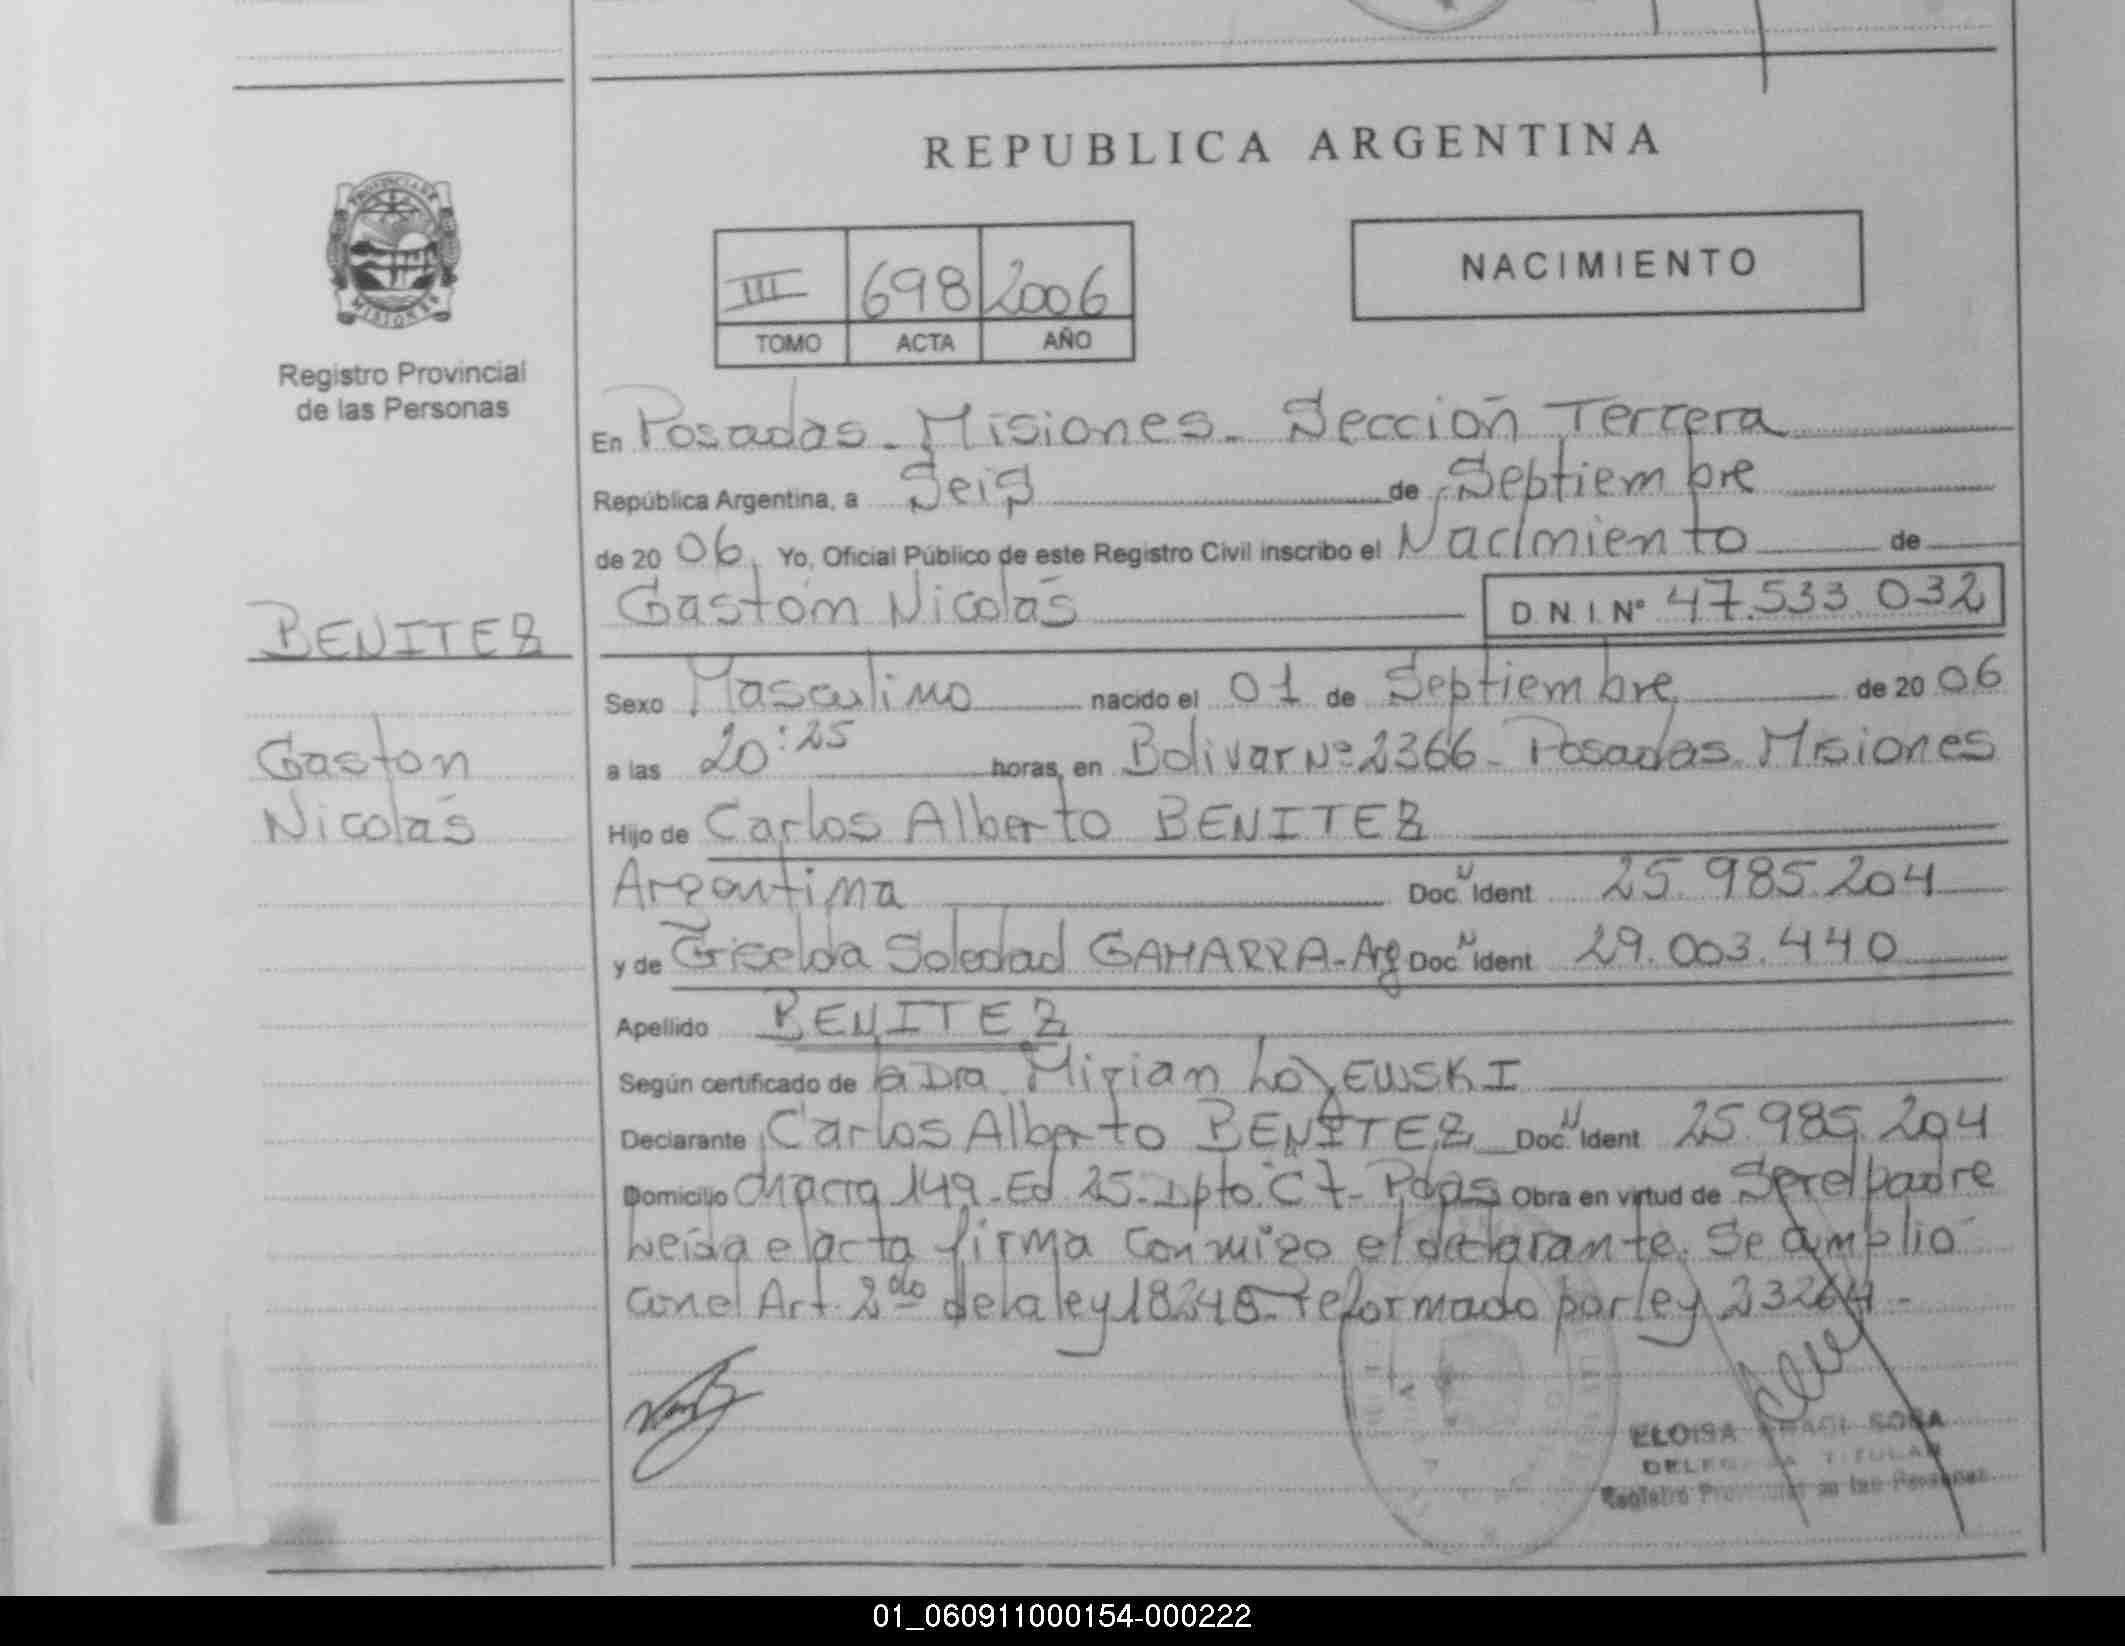 REPUBLICA ARGENTINA
PROVINCIA DE
MISIONES
Registro Provincial
de las Personas
III 698 2006
TOMO ACTA AÑO
NACIMIENTO
En Posadas - Misiones - Sección Tercera
República Argentina, a Seis de Septiembre
de 20 06. Yo, Oficial Público de este Registro Civil inscribo el Nacimiento de
Gastón Nicolás D.N.I. Nº 47.533.032
BENITEZ
Gastón
Nicolás
Sexo Masculino nacido el 01 de Septiembre de 20 06
a las 20:25 horas, en Bolivar Nº 2366 - Posadas. Misiones
Hijo de Carlos Alberto BENITEZ
Argentina Doc. N Ident 25.985.204
y de Griselda Soledad GAMARRA - Arg Doc. N Ident 29.003.440
Apellido BENITEZ
Según certificado de la Dra. Mirian
Declarante Carlos Alberto BENITEZ Doc. N Ident 25.985.204
Domicilio chacra 149 - Ed 25 - Dpto. C 7 - Pdas Obra en virtud de Ser el padre
Leida el acta firma conmigo el declarante. Se amplio
con el Art. 2do de la ley 18248 - reformado por ley 23264 -
ELOISA SOSA
DELEGADA TITULAR
Registro Provincial de las Personas
01_060911000154-000222